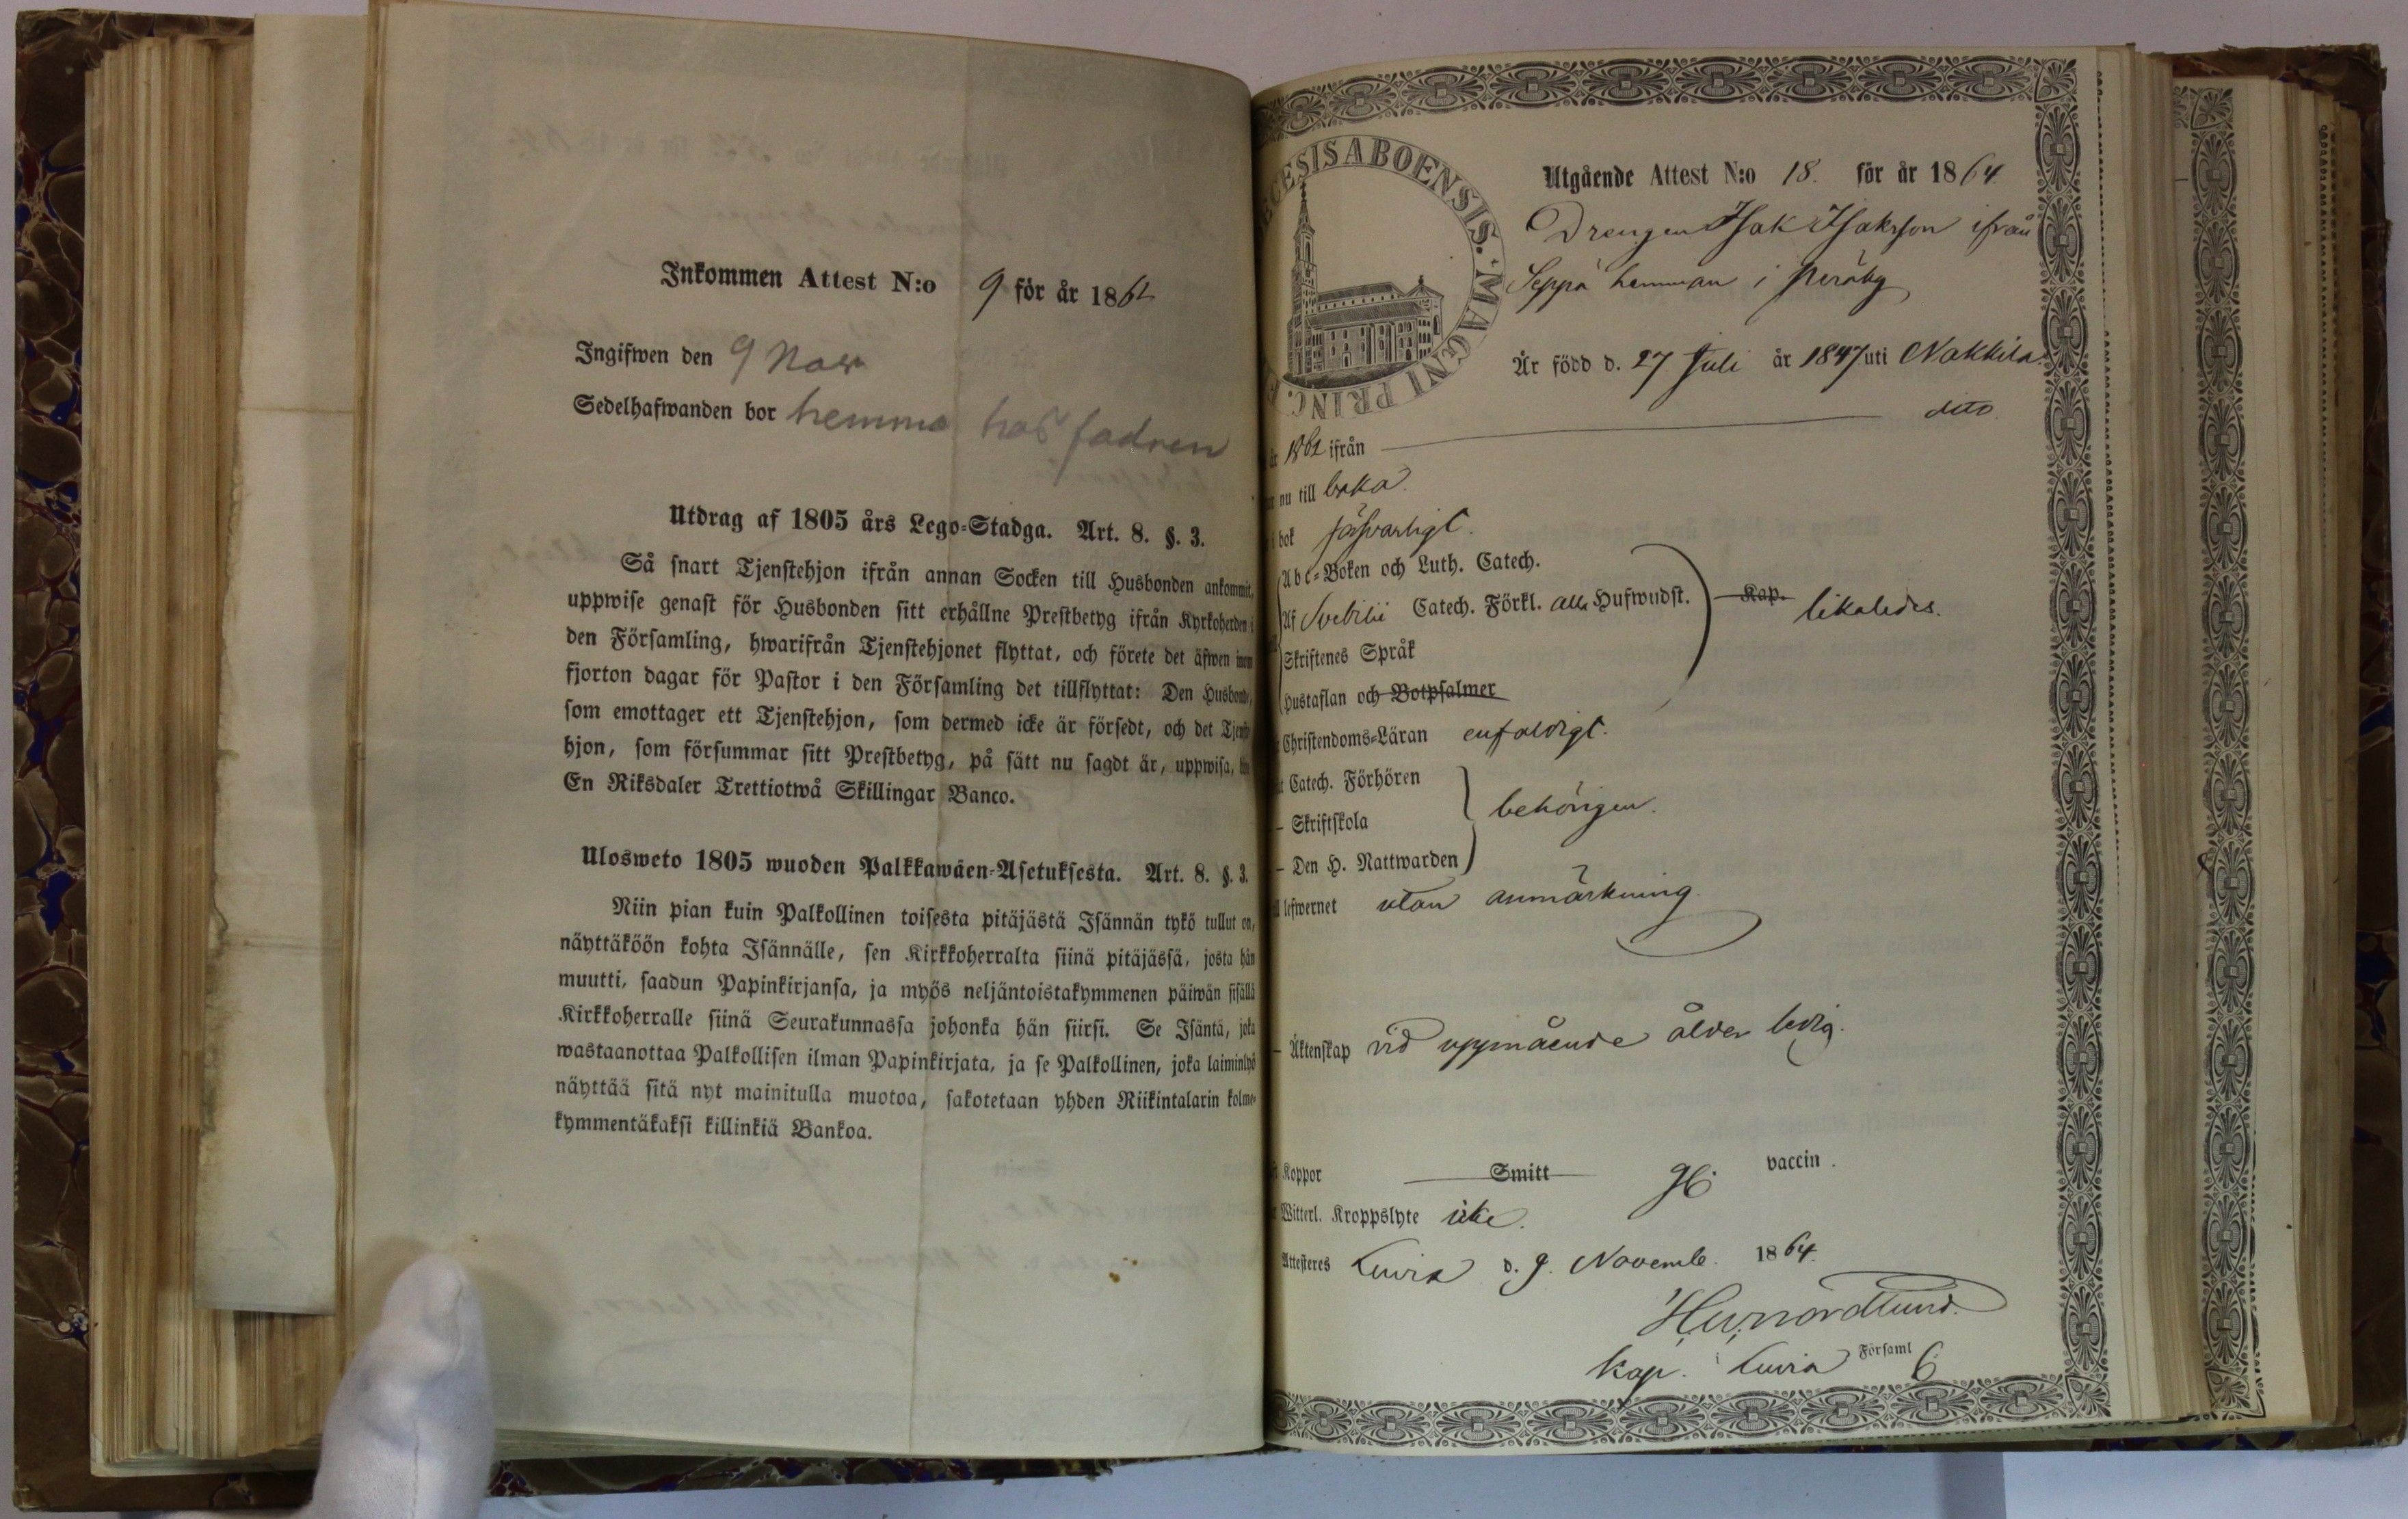 Inkommen Attest N:o 9 för år 186
Ingifwen den 9 Nov
Sedelhafwanden bor hemma hos fadren
Utdrag af 1805 års Lego-Stadga. Art. 8. §. 3.
Så snart Tjenstehjon ifrån annan Socken till Husbonden ankommit,
uppwise genast för Husbonden sitt erhållne Prestbetyg ifrån Kyrkoherden i
den Församling, hwarifrån Tjenstehjonet flyttat, och förete det äfwen inom
fjorton dagar för Pastor i den Församling det tillflyttat: Den Husbonde,
som emottager ett Tjenstehjon, som dermed icke är försedt, och det Tjenste-
hjon, som försummar sitt Prestbetyg, på sätt nu sagdt är, uppwisa,
En Riksdaler Trettiotwå Skillingar Banco.
Ulosweto 1805 wuoden Palkkawäen-Asetuksesta. Art. 8. §. 3.
Niin pian kuin Palkollinen toisesta pitäjästä Isännän tykö tullut on,
näyttäköön kohta Isännälle, sen Kirkkoherralta siinä pitäjässä, josta hän
muutti, saadun Papinkirjansa, ja myös neljäntoistakymmenen päiwän sisällä
Kirkkoherralle siinä Seurakunnassa johonka hän siirsi. Se Isäntä, joka
wastaanottaa Palkollisen ilman Papinkirjata, ja se Palkollinen, joka laiminlyö
näyttää sitä nyt mainitulla muotoa, sakotetaan yhden Riikintalarin kolme-
kymmentäkaksi killinkiä Bankoa.
CESIS ABOENSIS. MAGNI PRINC. F
Utgående Attest N:o 18. för år 1864
Drengen Isak Isaksson ifrån
Seppä hemman i Peräby
Är född d. 27 Juli år 1847 uti Nakkila.
dito
år 1862 ifrån
nu till baka.
i bok försvarligt.
Abc-Boken och Luth. Catech.
Af Svebilii Catech. Förkl. alla Hufwudst. Kap. likaledes.
Skriftenes Språk
Hustaflan och Botpsalmer
Christendoms-Läran enfaldigt.
Catech. Förhören
– Skriftskola behörigen.
– Den H. Nattwarden
lefwernet utan anmärkning
– Äktenskap vid uppnående ålder ledig.
Koppor Smitt gl. vaccin.
Witterl. Kroppslyte icke.
Attesteres Luvia d. 9. Novemb. 1864.
H. W. Nordlund.
Kap. i Luvia Församl